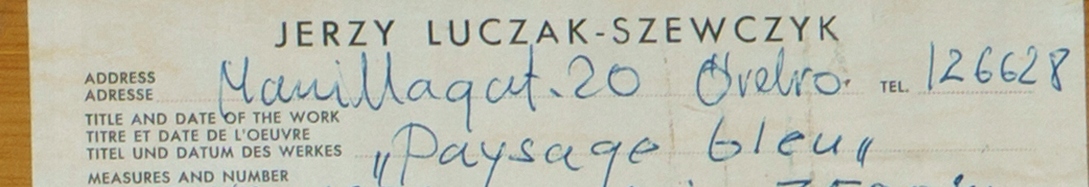 JERZY LUCZAK-SZEWCZYK
ADDRESS
ADRESSE Manillagat. 20 Örebro. TEL. 126628
TITLE AND DATE OF THE WORK
TITRE ET DATE DE L'OEUVRE
TITEL UND DATUM DES WERKES „Paysage bleu„
MEASURES AND NUMBER